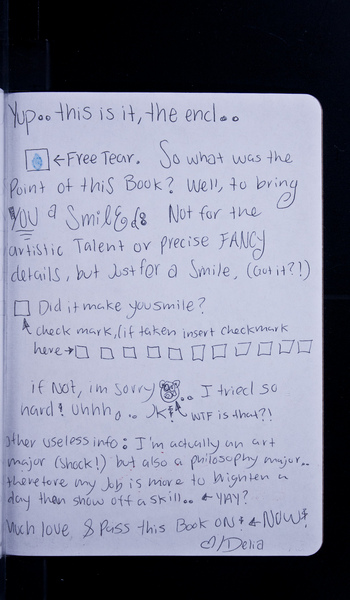 Yup.. this is it, the end..
←Free Tear. So what was the
Point of this Book? Well, to bring
YOU a Smile Not for the
artistic Talent or precise FANCY
details, but Just for a Smile, (Got it?!)
Did it make you smile?
check mark, (if taken insert checkmark
here→
if Not, im sorry .. I tried so
hard! uhhh.. JK! WTF is that?!
other useless info: I'm actually an art
major (shock!) but also a philosophy major..
therefore my Job is more to brighten a
day then show off a skill.. ←YAY?
Much love & Pass this Book ON! ←NOW!
♡/Delia